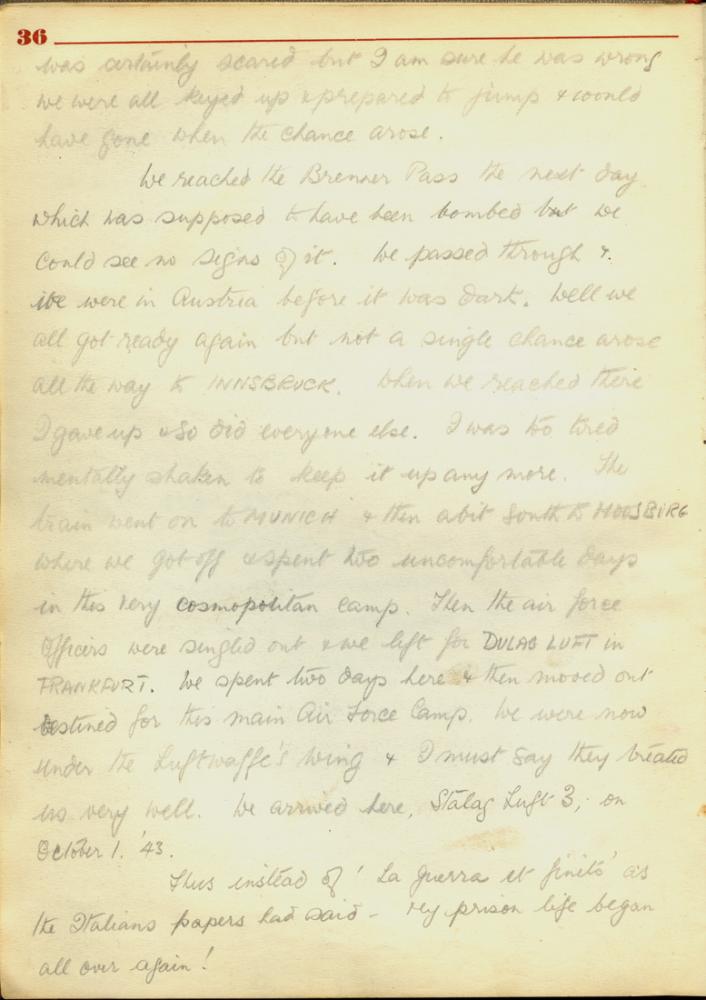 36
was certainly scared but I am sure he was wrong
we were all keyed up & prepared to jump & would
have gone when the chance arose.
We reached the Brenner Pass the next day
which was supposed to have been bombed but we
could see no signs of it. We passed through &
we were in Austria before it was dark. Well we
all got ready again but not a single chance arose
all the way to INNSBRUCK. When we reached there
I gave up & so did everyone else. I was too tired
mentally shaken to keep it up any more. The
train went on to MUNICH & then a bit South to MOOSBIRG
where we got off & spent two uncomfortable days
in this very cosmopolitan camp. Then the air force
Officers were singled out & we left for DULAG LUFT in
FRANKFURT. We spent two days here & then moved out
destined for this main Air Force Camp. We were now
under the Luftwaffe's wing & I must say they treated
us very well. We arrived here, Stalag Luft 3, on
October 1. '43.
Thus instead of 'La guerra et finito' as
the Italians papers had said - my prison life began
all over again!